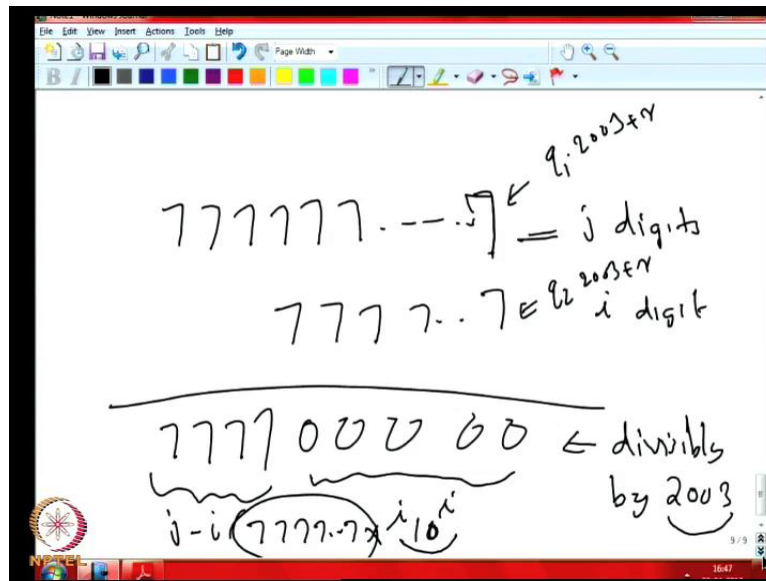 File Edit View Insert Actions Tools Help
Page Width
B I
q₁ 2003 + r
777777. --- .7 = j digits
7777..7 ← q₂ 2003 + r i digit
7777 00000 ← divisibly
by 2003
j-i 7777..7 x 10^i
i
9/9
NPTEL
16:47